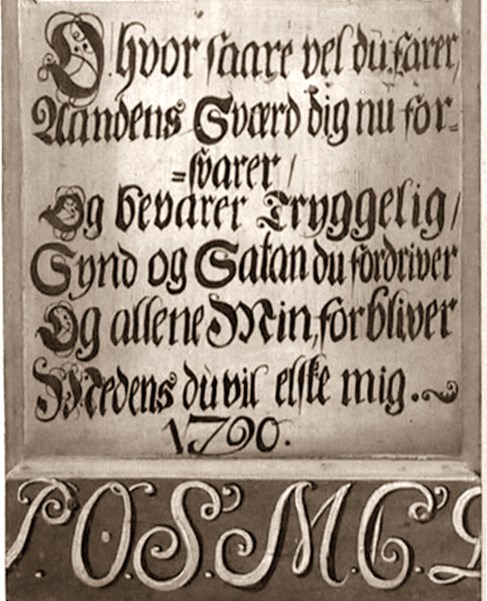 O hvor saare vel du farer,
Aandens Sværd dig nu for-
=svarer /
Og bevarer Tryggelig /
Synd og Satan du fordriver
Og allene Min forbliver
Medens du vil elske mig.
1790.
P. O. S. M. C. D